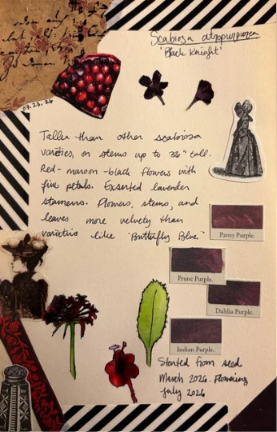 Scabiosa atropurpurea
"Black Knight"
Taller than other scabiosa
varieties, on stems up to 36" tall.
Red-maroon-black flowers with
five petals. Exserted lavender
stamens. Flowers, stems, and
leaves more velvety than
varieties like "Butterfly Blue".
Pansy Purple.
Prune Purple.
Dahlia Purple.
Indian Purple.
Started from seed
March 2026. Flowering
July 2026